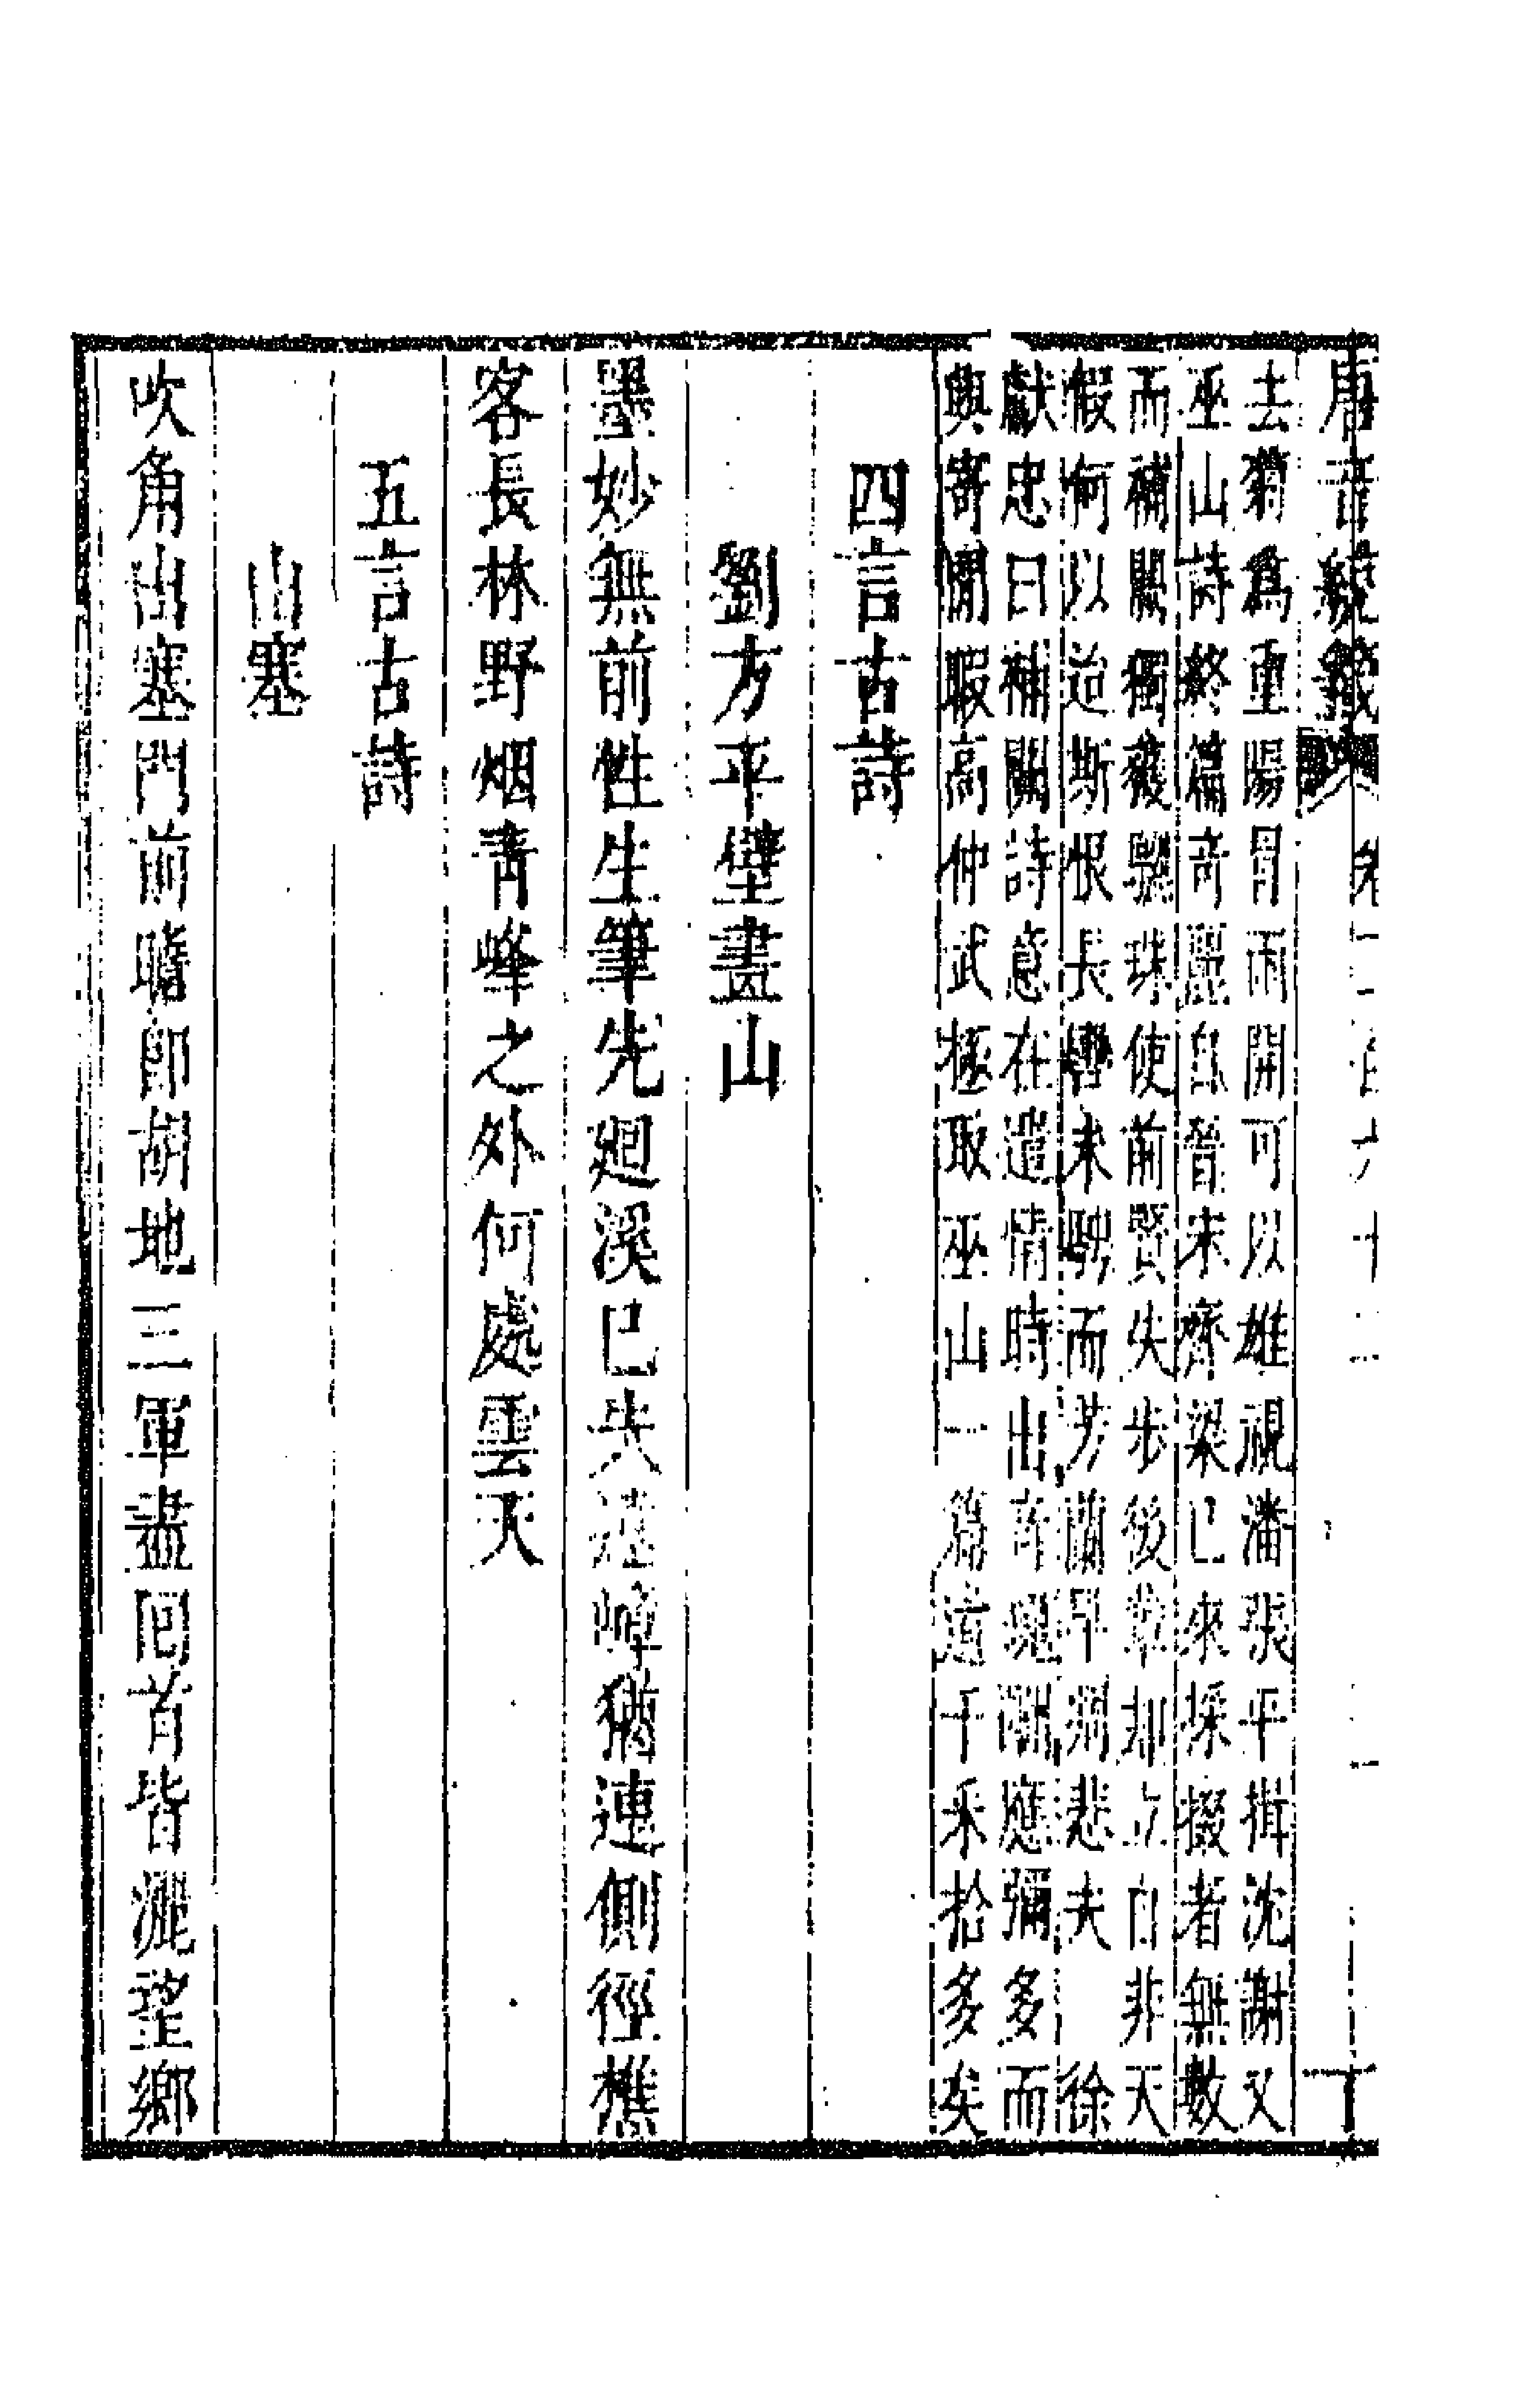 唐音統籤
去猶爲重陽冒雨開可以雄視潘張平揖沈謝又
巫山詩終篇奇麗自晉宋齊梁已來採掇者無數
而補闕獨獲驪珠使前賢失步後輩却立自非天
假何以迨斯恨長轡未騁而芳蘭早凋悲夫 徐
獻忠曰補闕詩意在遣情時出奇瑰應彌多而
寄閒暇高仲武極取巫山一篇于采拾多矣
四言古詩
劉方平壁畫山
墨妙無前性生筆先廻溪已失遠嶂猶連側徑樵
客長林野烟青峰之外何處雲天
五言古詩
出塞
吹角出塞門前瞻即胡地三軍盡回首皆灑望鄉